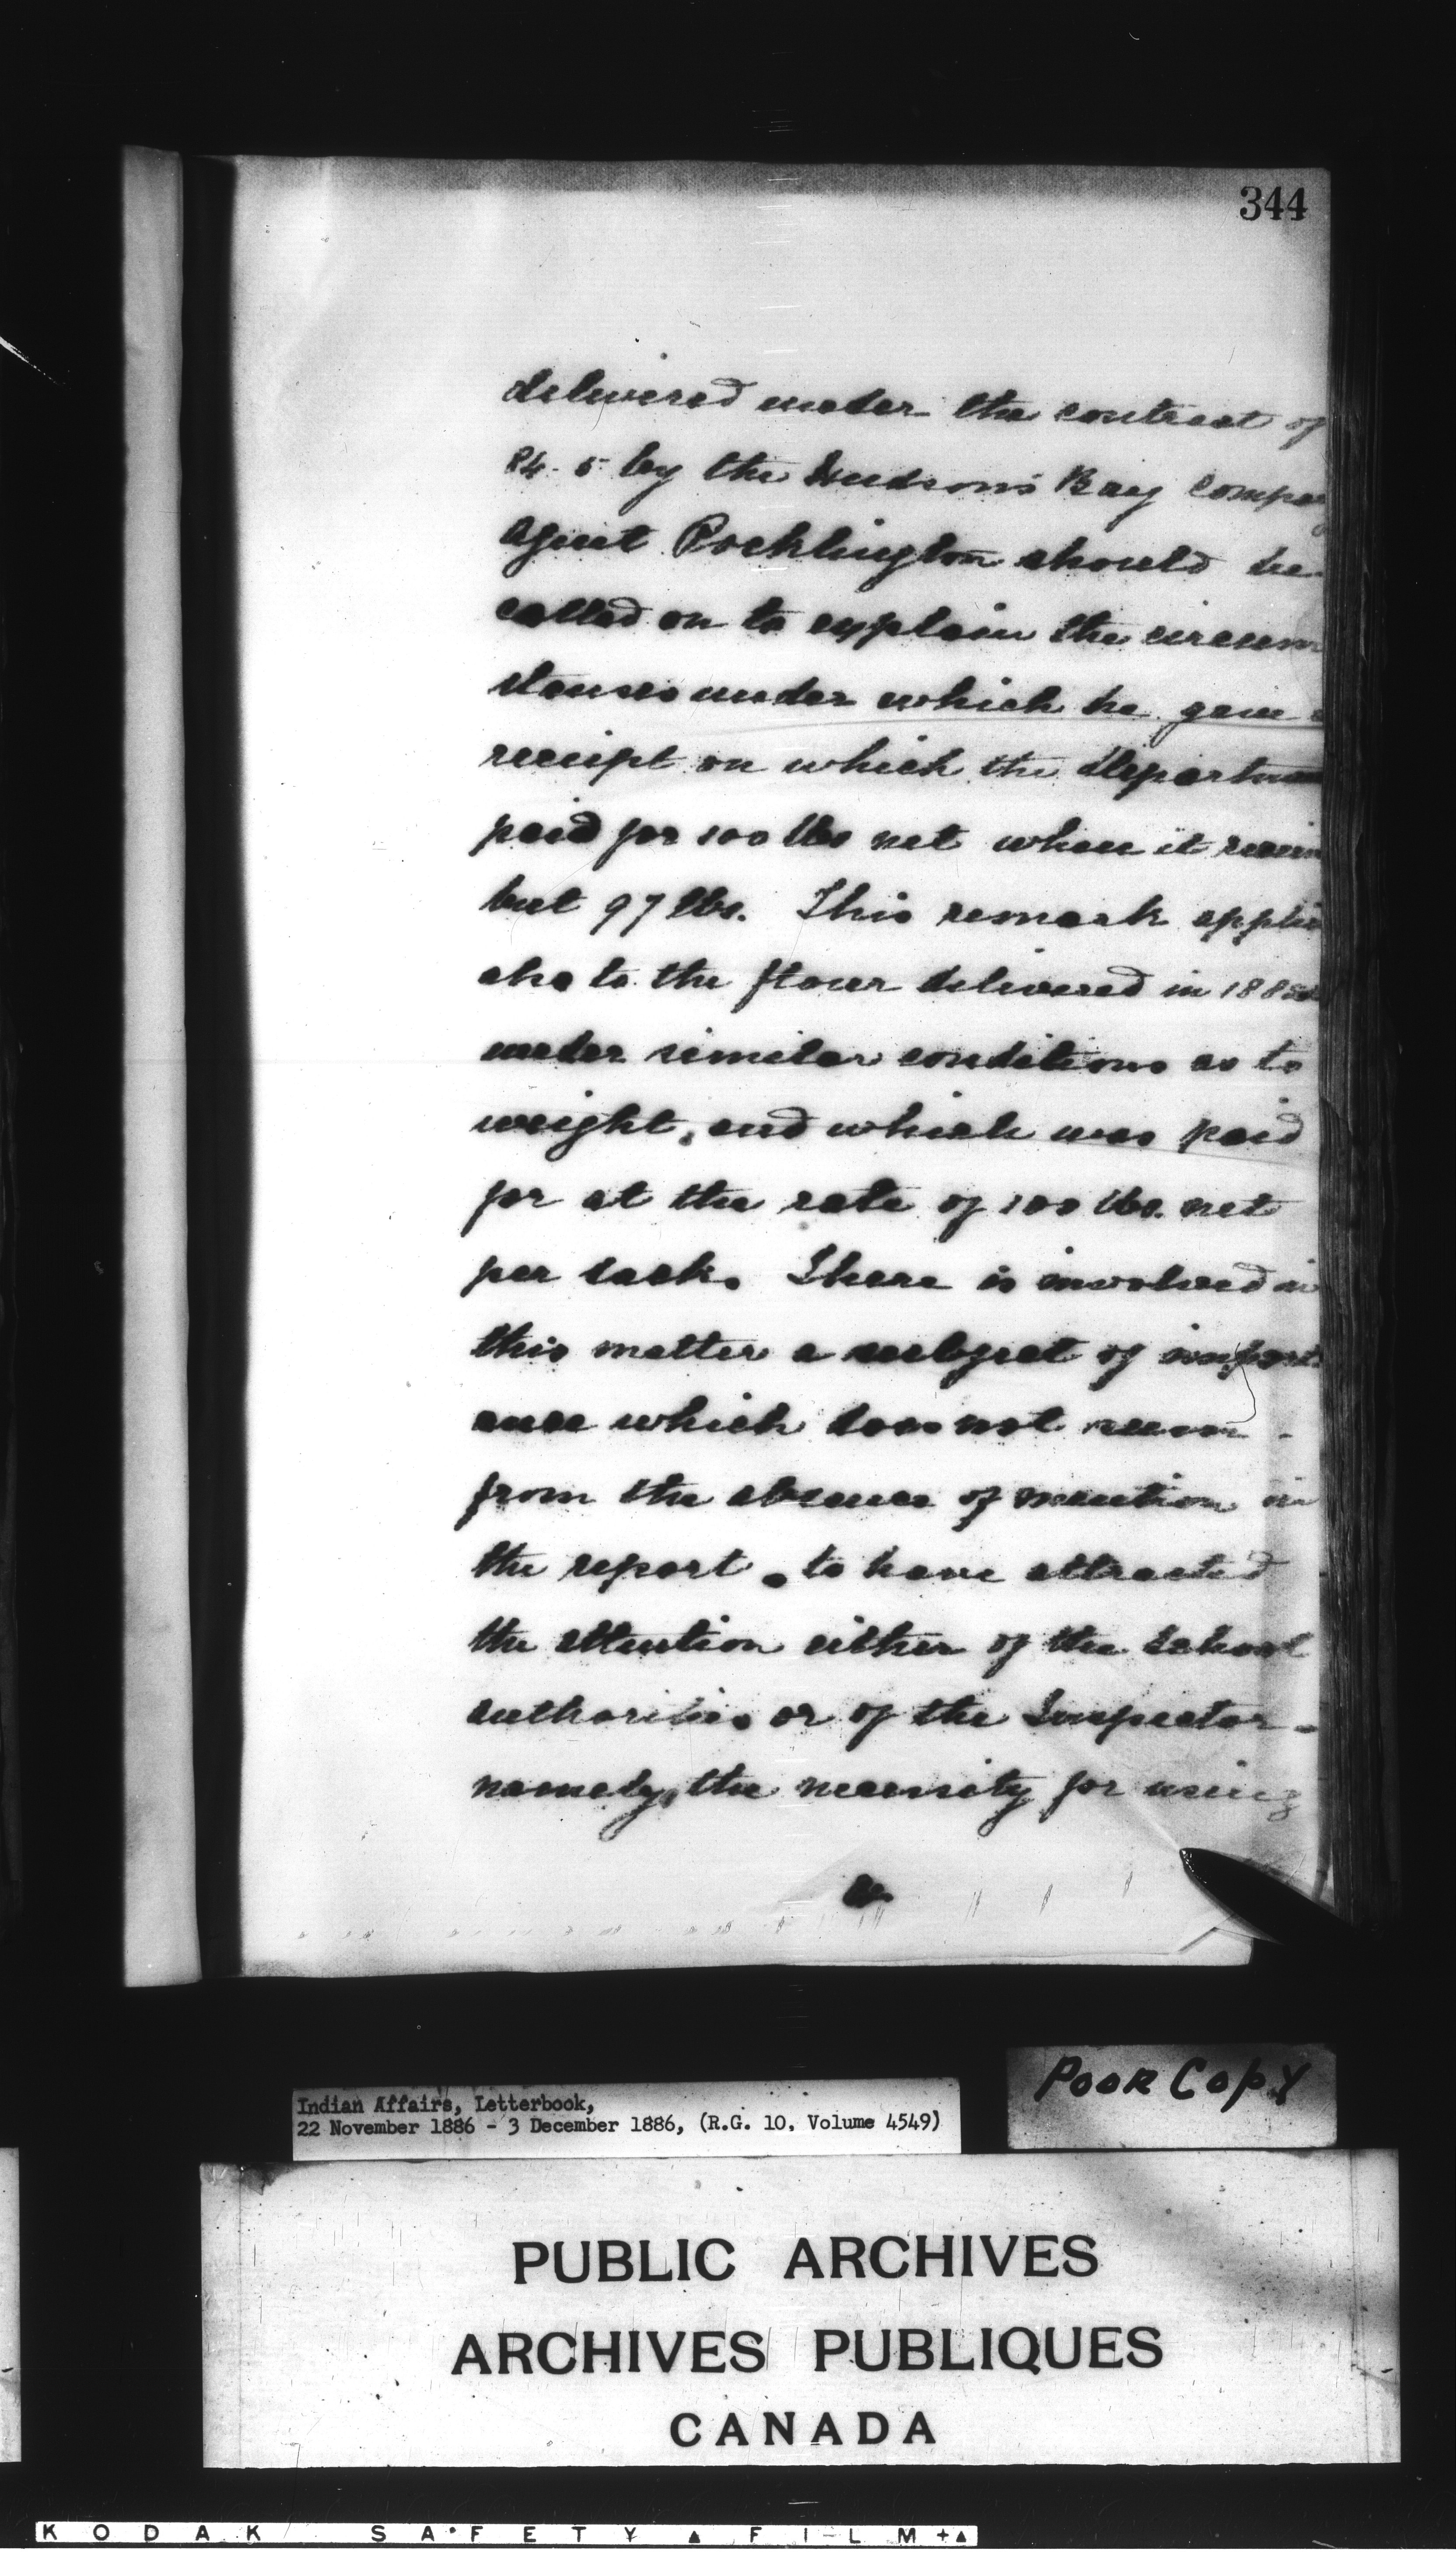 344
delivered under the contract of
84-5 by the Hudson's Bay Compa
Agent Pocklington should be
called on to explain the circum
stances under which he gave a
receipt on which the Departm
paid for 100 lbs net when it receiv
but 97 lbs. This remark applie
also to the flour delivered in 188
under similar conditions as to
weight, and which was paid
for at the rate of 100 lbs. net
per sack. There is involved in
this matter a subject of import
ance which does not seem
from the absence of mention in
the report, to have attracted
the attention either of the School
authorities or of the Inspector-
namely, the necessity for using
Poor Copy
Indian Affairs, Letterbook,
22 November 1886 - 3 December 1886, (R.G. 10, Volume 4549)
PUBLIC ARCHIVES
ARCHIVES PUBLIQUES
CANADA
KODAK SAFETY FILM